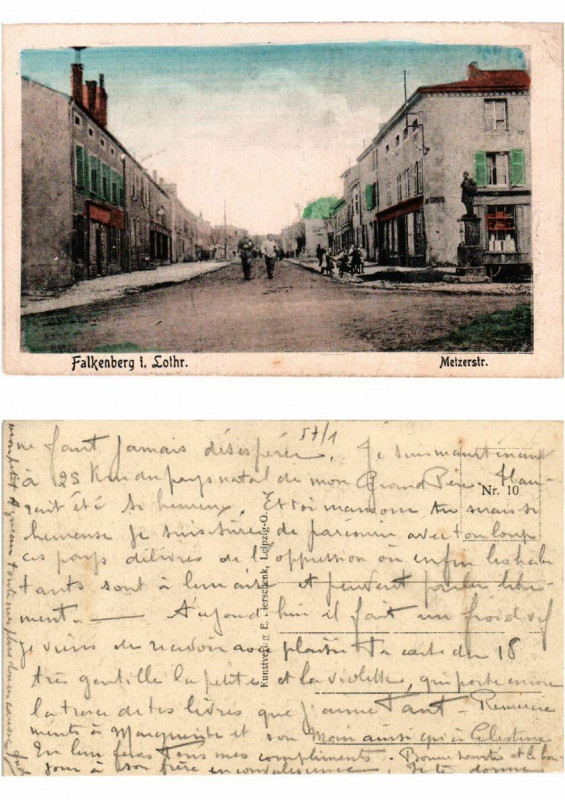 Falkenberg i. Lothr.
Metzerstr.
57/1
ne faut jamais désespérer. Je suis maintenant
à 25 Km du pays natal de mon Grand Père. Il au-
rait été si heureux. Et toi maman tu serais si
heureuse je suis sûre de parcourir avec ton loup
ces pays délivrés de l'oppression où enfin les habi
tants sont à leur aise et peuvent parler libre-
ment. — Aujourd'hui il fait un froid vif
je viens de recevoir avec plaisir ta carte du 18
très gentille la petite et la violette, qui porte encore
la trace de tes lèvres que j'aime tant Remercie
ments à Marguerite et son Mari ainsi qu'à Célestine
En leur fais tous mes compliments. Bonne santé et le bon-
jour à son frère en convalescence. Je te donne
mon petit
Nr. 10
Kunstverlag E. Herschenk, Leipzig-O.